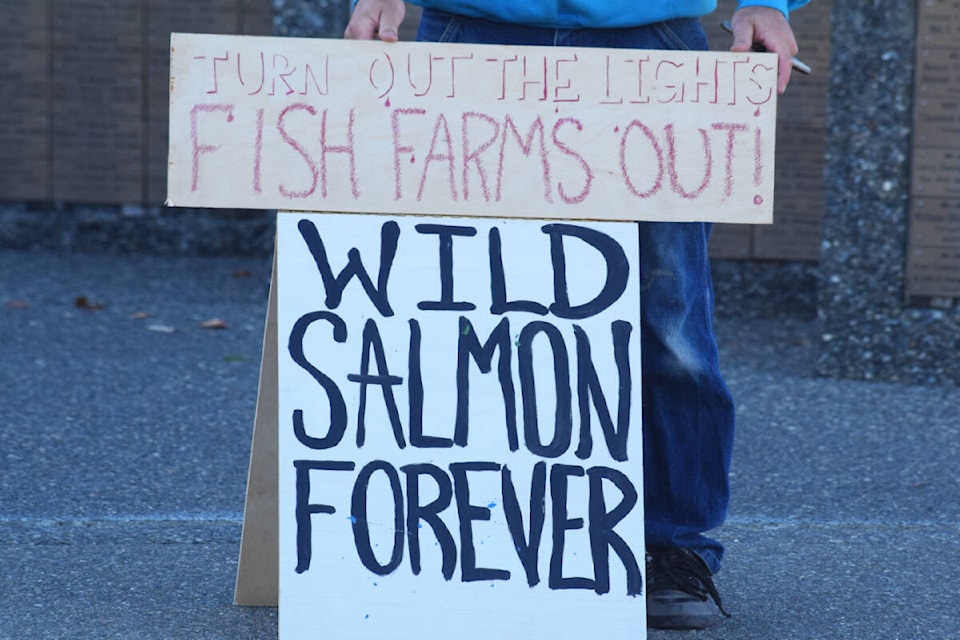 TURN OUT THE LIGHTS
FISH FARMS OUT!
WILD
SALMON
FOREVER